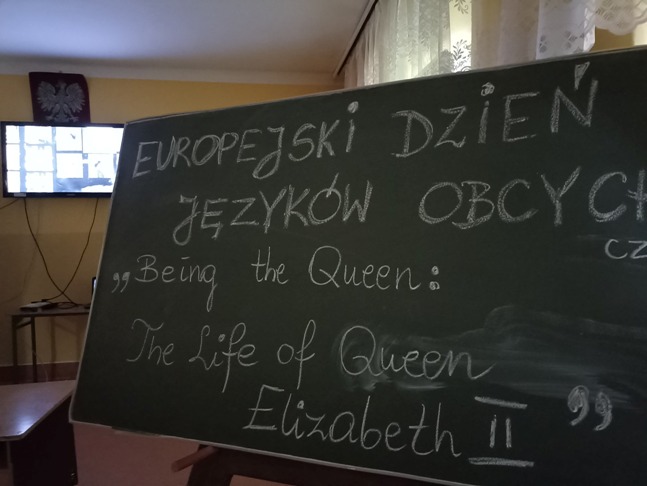 EUROPEJSKI DZIEŃ
JĘZYKÓW OBCYCH
CZ
„Being the Queen:
The Life of Queen
Elizabeth II”